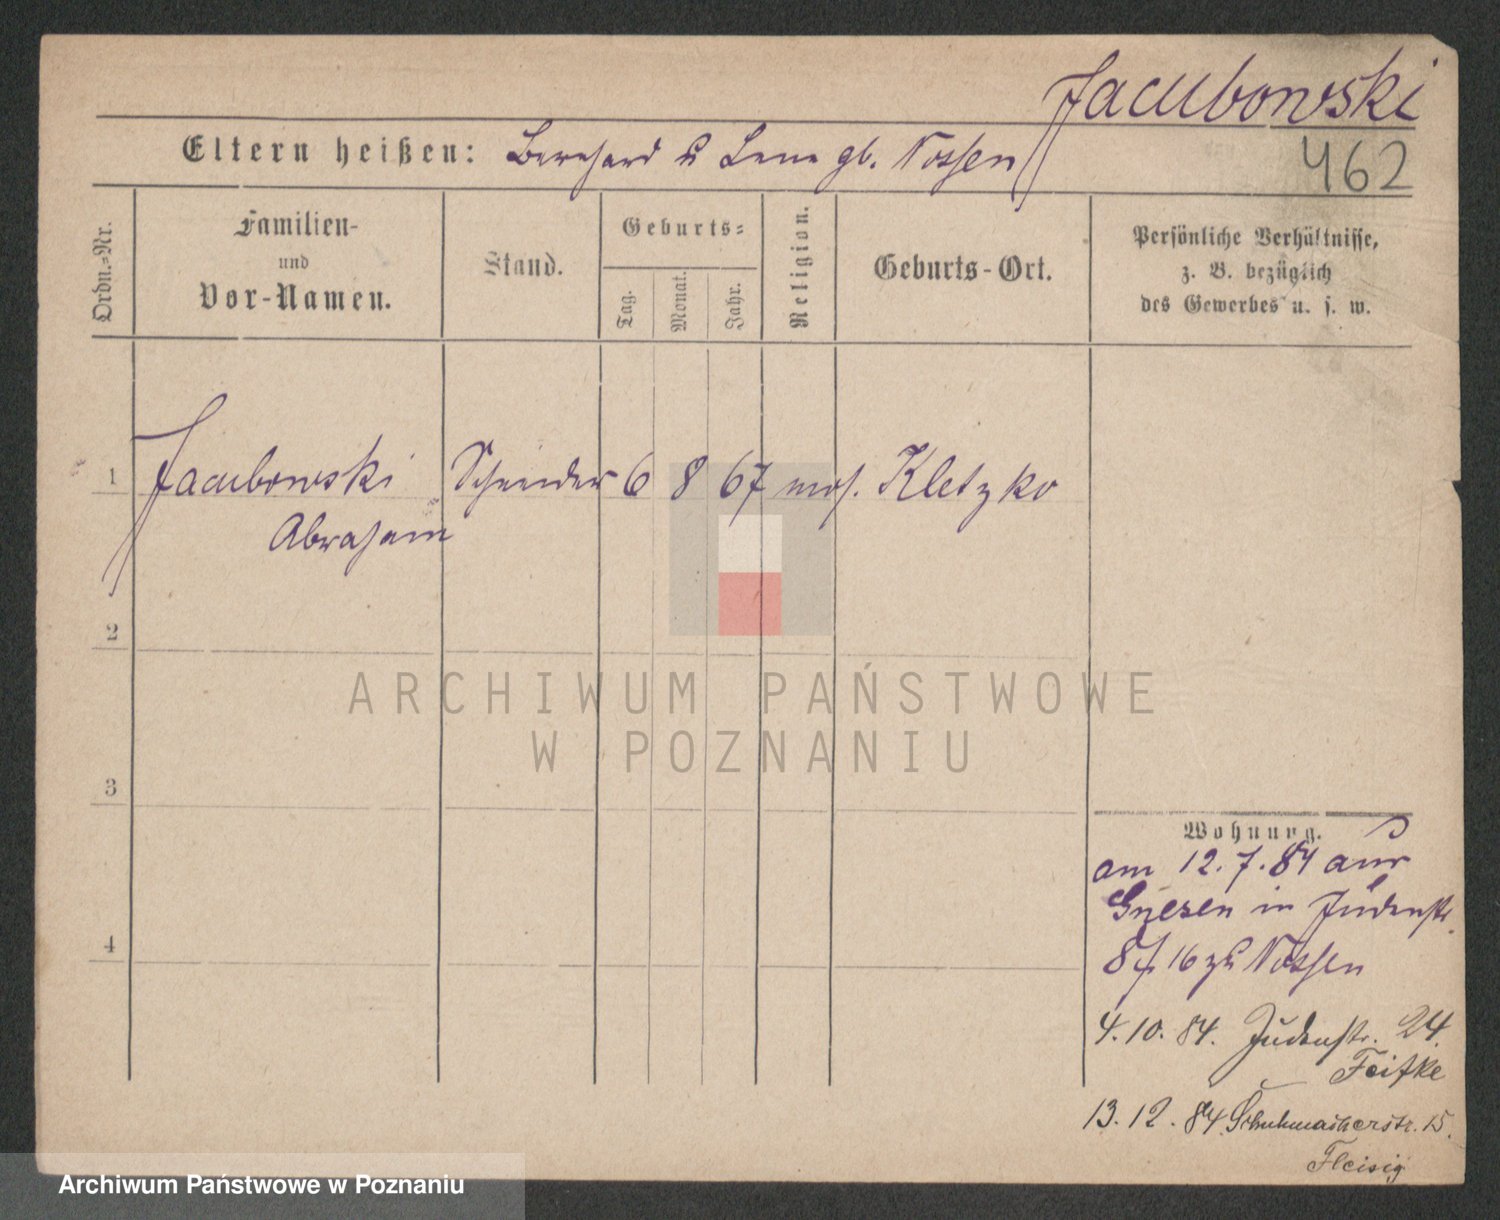 Jacubowski
462
Eltern heißen: Bernhard u Lene gb. Nossen
Ordn.-Nr.
Familien-
und
Vor-Namen.
Stand.
Geburts-
Tag.
Monat.
Jahr.
Religion.
Geburts-Ort.
Persönliche Verhältnisse,
z. B. bezüglich
des Gewerbes u. s. w.
1 Jacubowski Schneider 6 8 67 mos. Kletzko
Abraham
2
3
4
ARCHIWUM PAŃSTWOWE
W POZNANIU
Wohnung.
am 12.7.84 aus
Gnesen in Judenstr.
16 zu Nossen
4.10.84. Judenstr. 24.
13.12.84. Schuhmacherstr. 15.
Fleisig
Archiwum Państwowe w Poznaniu